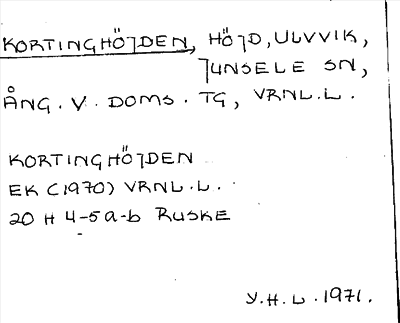 KORTINGHÖJDEN, HÖJD, ULVVIK,
JUNSELE SN,
ÅNG. V. DOMS. TG, VRNL.L.
KORTINGHÖJDEN
EK (1970) VRNL.L.
20 H 4-5 a-b RUSKE
Y.H.L. 1971.